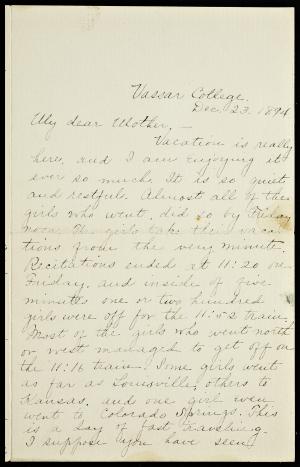 Vassar College.
Dec. 23. 1894
My dear Mother,—
Vacation is really
here, and I am enjoying it
ever so much. It is so quiet
and restful. Almost all of the
girls who went, did so by Friday
noon. The girls take their vaca-
tions from the very minute.
Recitations ended at 11:20 on
Friday, and inside of five
minutes one or two hundred
girls were off for the 11:52 train.
Most of the girls who went north
or west managed to get off on
the 11:16 train. Some girls went
as far as Louisville, others to
Kansas, and one girl even
went to Colorado Springs. This
is a day of fast traveling.
I suppose you have seen